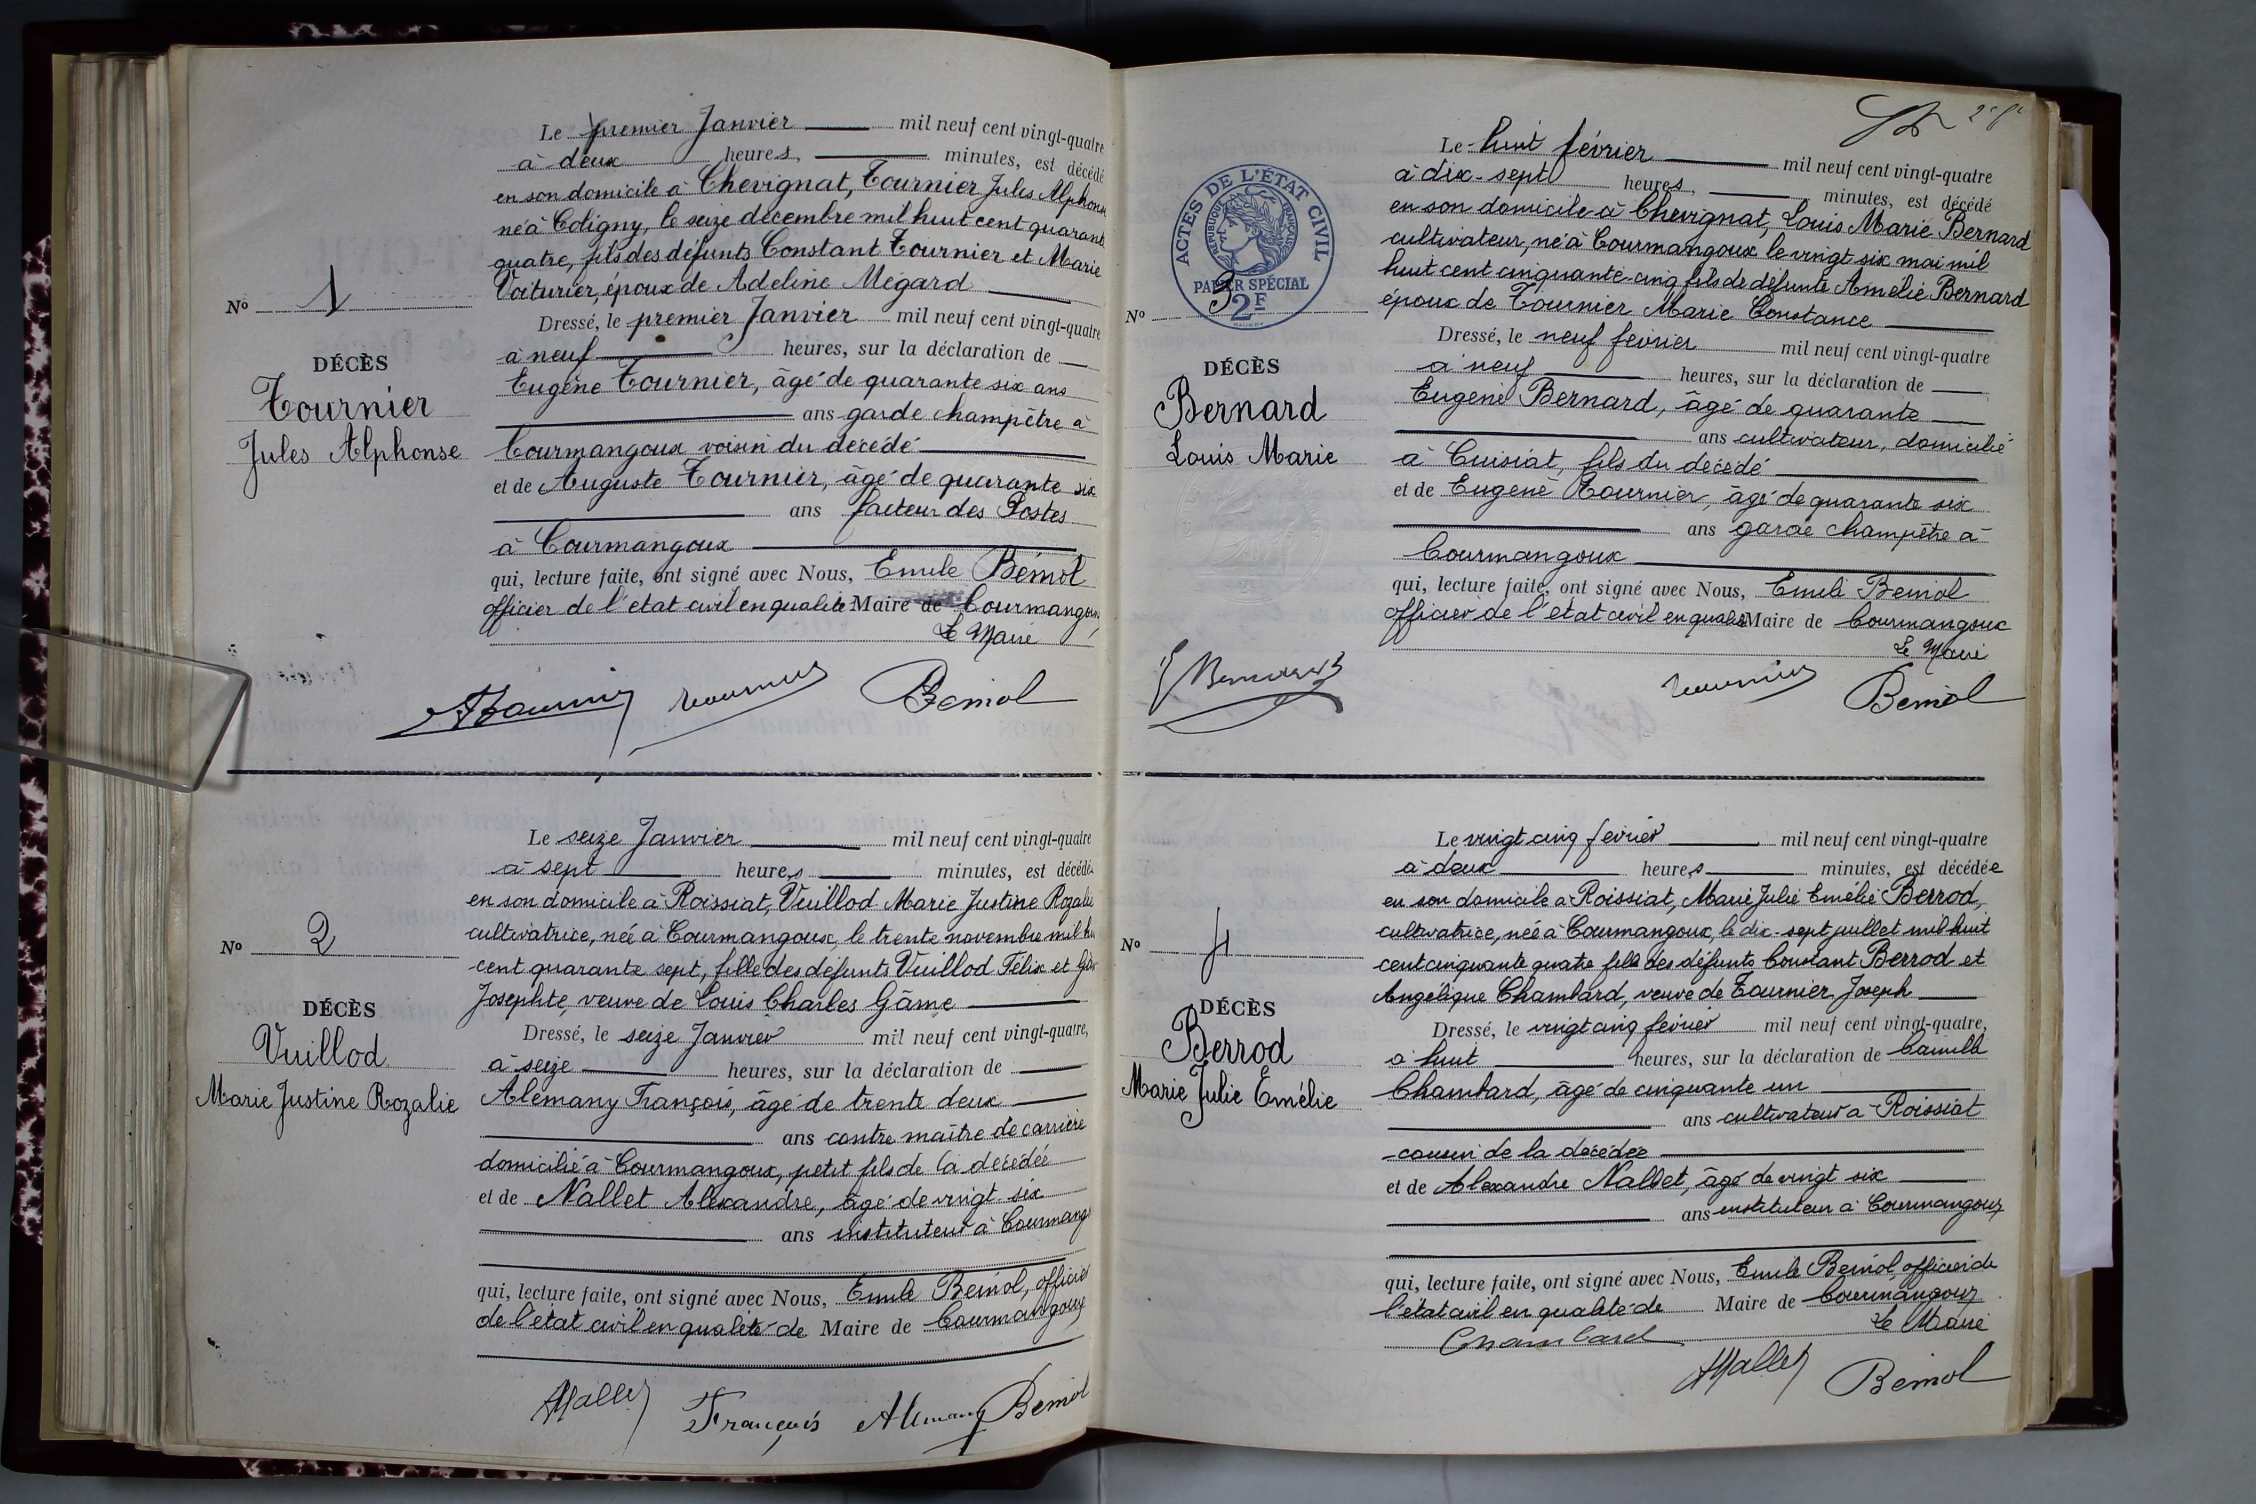 Le premier Janvier mil neuf cent vingt-quatre
à deux heures, minutes, est décédé
en son domicile à Chevignat, Tournier Jules Alphonse
né à Coligny, le seize décembre mil huit cent quarante
quatre, fils des défunts Constant Tournier et Marie
Voiturier, époux de Adeline Mégard
Nº 1
Dressé, le premier Janvier mil neuf cent vingt-quatre
à neuf heures, sur la déclaration de
DÉCÈS
Tournier
Jules Alphonse
Eugène Tournier, âgé de quarante six ans
ans garde champêtre à
Courmangoux voisin du décédé
et de Auguste Tournier, âgé de quarante six
ans facteur des Postes
à Courmangoux
qui, lecture faite, ont signé avec Nous, Emile Béniol
officier de l'état civil en qualité Maire de Courmangoux
Le Maire
Tournier Beniol
Le seize Janvier mil neuf cent vingt-quatre
à sept heures minutes, est décédée
en son domicile à Roissiat, Vuillod Marie Justine Rozalie
cultivatrice, née à Courmangoux, le trente novembre mil hu
cent quarante sept, fille des défunts Vuillod Félix et
Josephte, veuve de Louis Charles Gâme
Nº 2
DÉCÈS
Vuillod
Marie Justine Rozalie
Dressé, le seize Janvier mil neuf cent vingt-quatre,
à seize heures, sur la déclaration de
Alémany François, âgé de trente deux
ans contre maître de carrière
domicilié à Courmangoux, petit fils de la décédée
et de Nallet Alexandre, âgé de vingt six
ans instituteur à Courmang
qui, lecture faite, ont signé avec Nous, Emile Beniol, officier
de l'état civil en qualité de Maire de Courmangoux
ANallet François Alemany Beniol
2e
Le huit février mil neuf cent vingt-quatre
à dix-sept heures, minutes, est décédé
en son domicile à Chevignat, Louis Marie Bernard
cultivateur, né à Courmangoux le vingt six mai mil
huit cent cinquante-cinq fils de défunte Amélie Bernard
époux de Tournier Marie Constance
ACTES DE L'ÉTAT CIVIL
RÉPUBLIQUE FRANÇAISE
PAPIER SPÉCIAL
2F
Nº 3
DÉCÈS
Bernard
Louis Marie
Dressé, le neuf février mil neuf cent vingt-quatre
à neuf heures, sur la déclaration de
Eugène Bernard, âgé de quarante
ans cultivateur, domicilié
à Cuisiat, fils du décédé
et de Eugène Tournier, âgé de quarante six
ans garde champêtre à
Courmangoux
qui, lecture faite, ont signé avec Nous, Emile Beniol
officier de l'état civil en qualité Maire de Courmangoux
Le Maire
Bernard Tournier Beniol
Le vingt cinq février mil neuf cent vingt-quatre
à deux heures minutes, est décédée
en son domicile à Roissiat, Marie Julie Emélie Berrod,
cultivatrice, née à Courmangoux, le dix-sept juillet mil huit
cent cinquante quatre fille des défunts Constant Berrod et
Angélique Chambard, veuve de Tournier Joseph
Nº 4
DÉCÈS
Berrod
Marie Julie Emélie
Dressé, le vingt cinq février mil neuf cent vingt-quatre,
à huit heures, sur la déclaration de Camille
Chambard, âgé de cinquante un
ans cultivateur à Roissiat
cousin de la décédée
et de Alexandre Nallet, âgé de vingt six
ans instituteur à Courmangoux
qui, lecture faite, ont signé avec Nous, Emile Beniol, officier de
l'état civil en qualité de Maire de Courmangoux
Le Maire
Chambard
ANallet Beniol